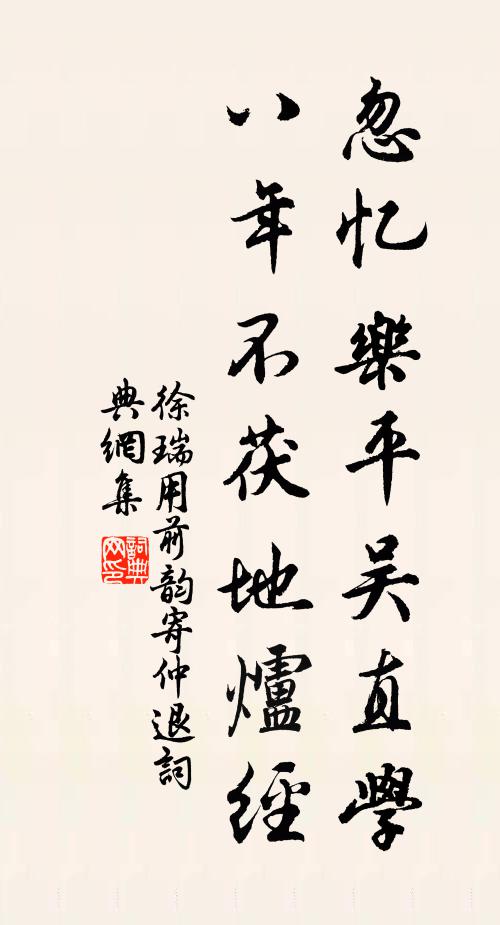 忽忆樂平吴直學
八年不茯地爐經
徐瑞用前韵寄仲退詞
典網集
詞典网印